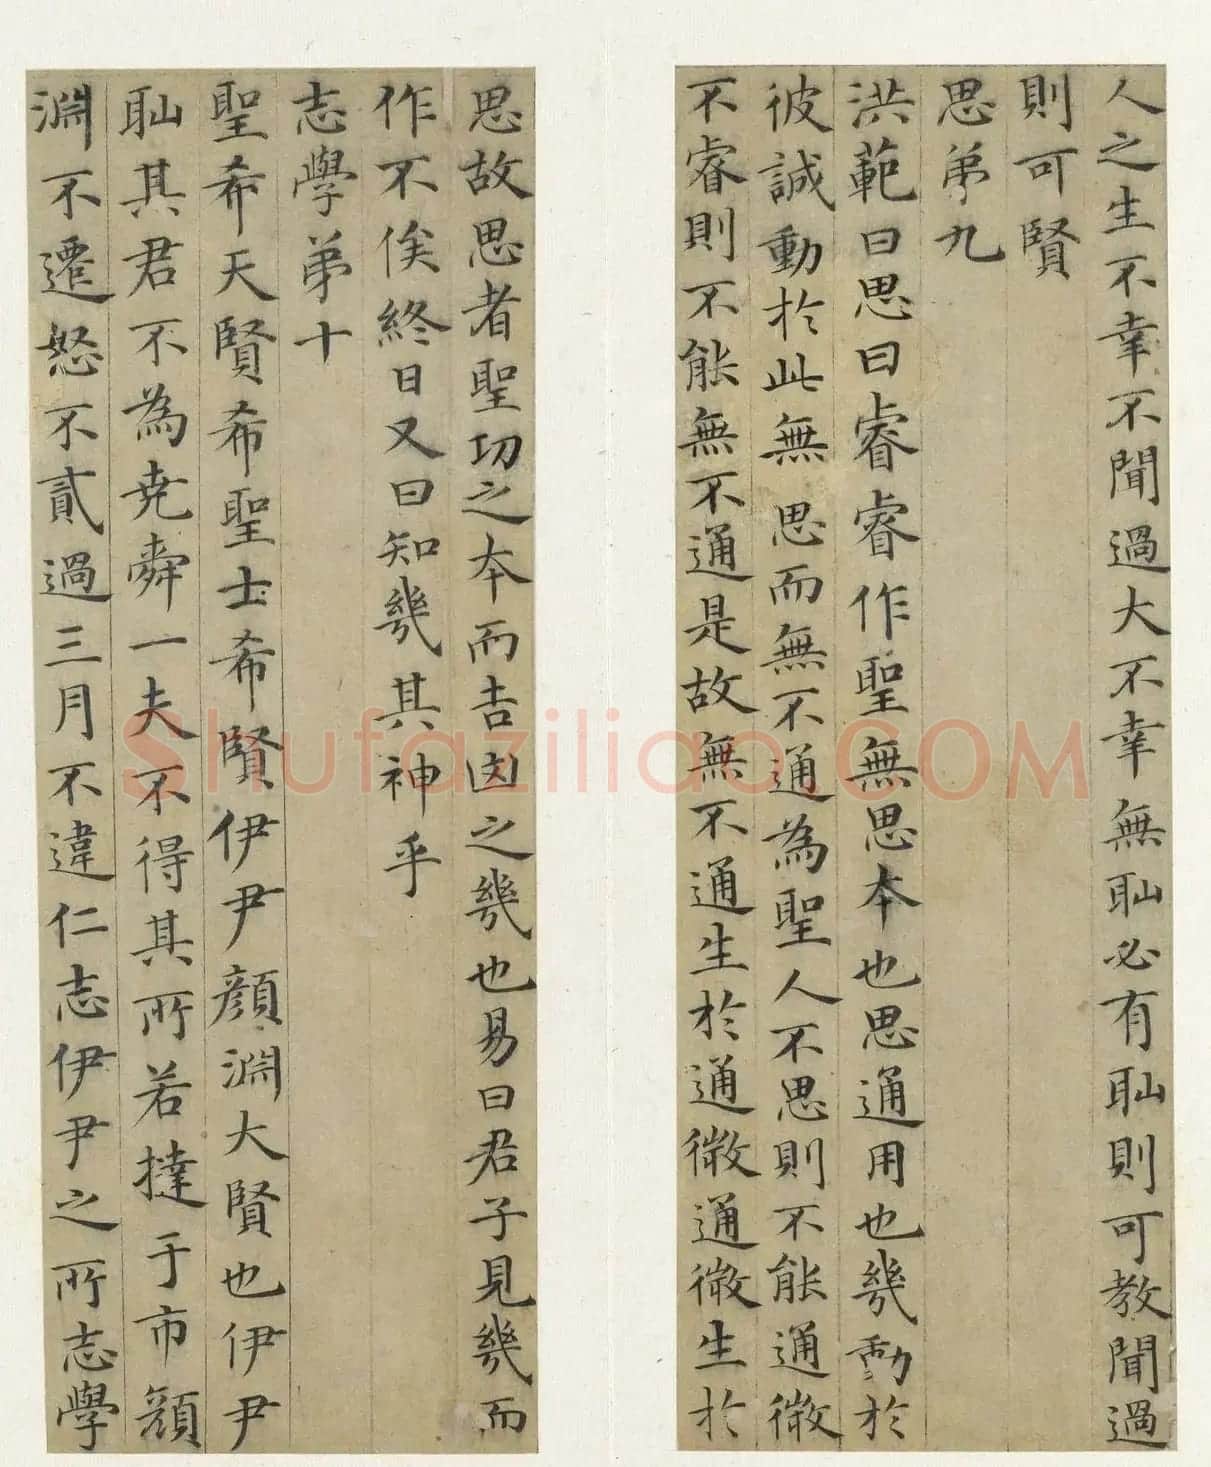 人之生不幸不聞過大不幸無耻必有耻則可教聞過
則可賢
思苐九
洪範曰思曰睿睿作聖無思本也思通用也幾動於
彼誠動於此無思而無不通為聖人不思則不能通微
不睿則不能無不通是故無不通生於通微通微生於
思故思者聖功之本而吉凶之幾也易曰君子見幾而
作不俟終日又曰知幾其神乎
志學苐十
聖希天賢希聖士希賢伊尹顔淵大賢也伊尹
耻其君不為堯舜一夫不得其所若撻于市顔
淵不遷怒不貳過三月不違仁志伊尹之所志學
Shufaziliao.COM